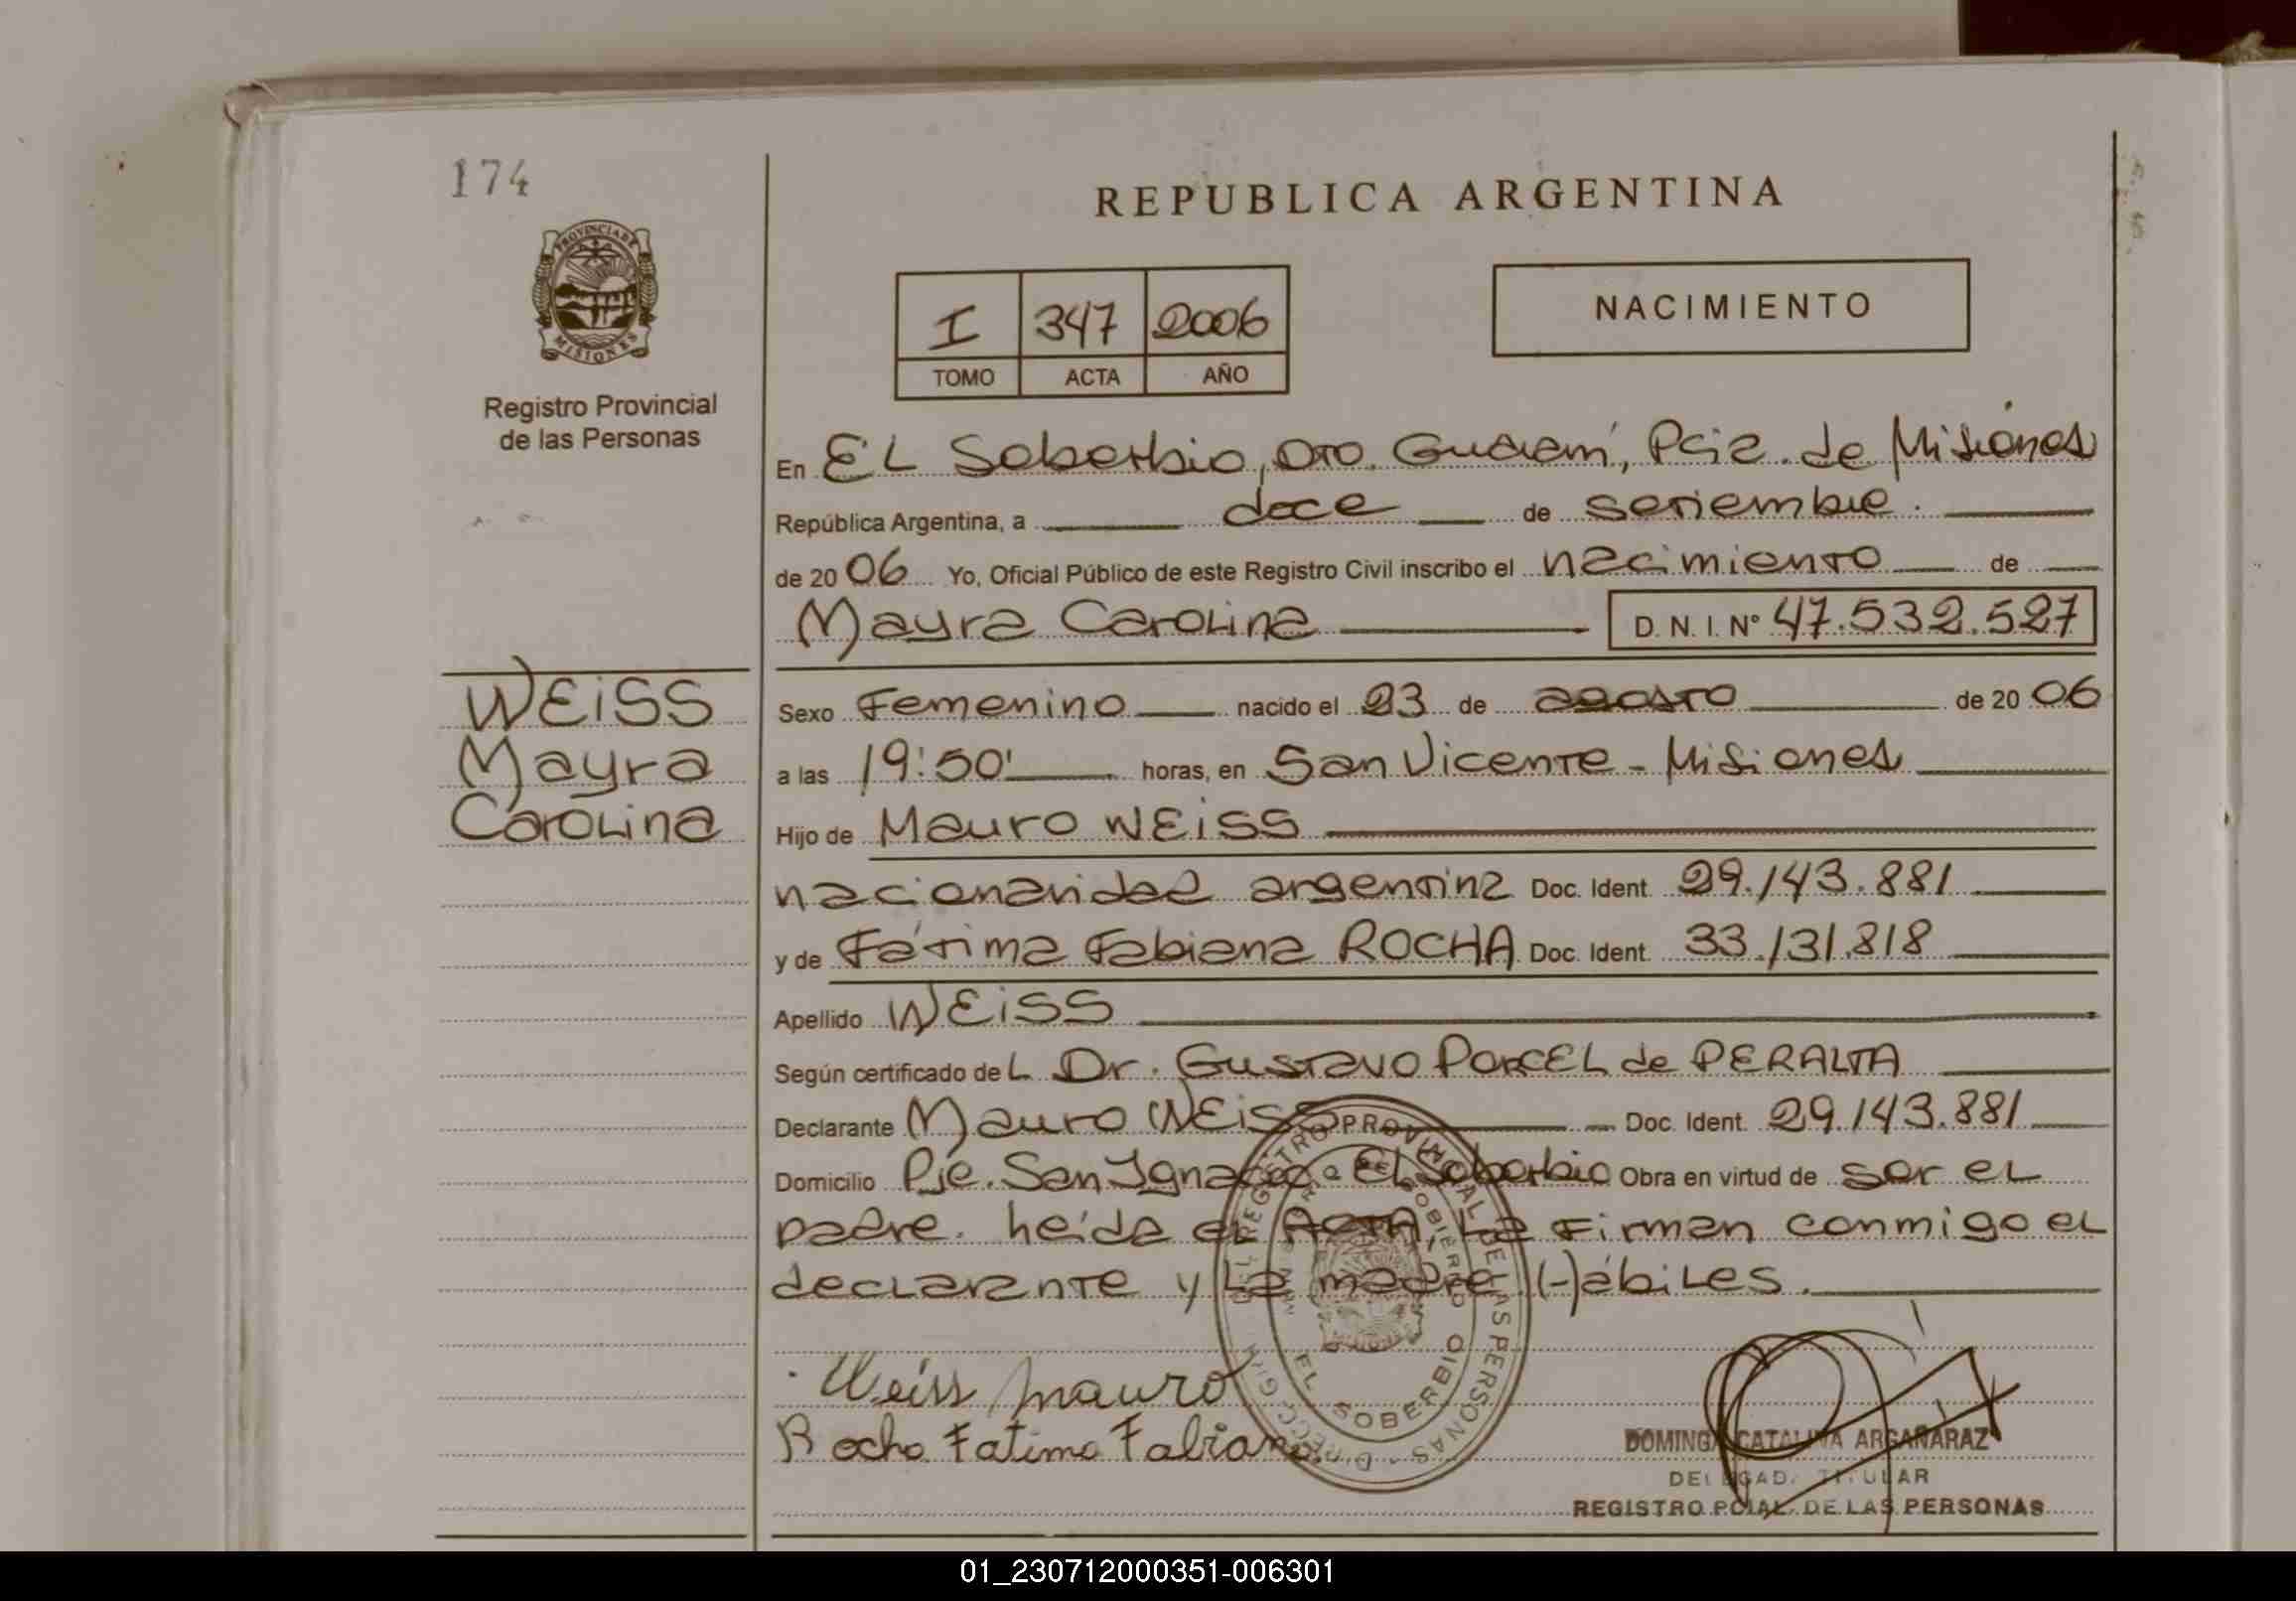 174
REPUBLICA ARGENTINA
PROVINCIA DE
MISIONES
Registro Provincial
de las Personas
I 347 2006
TOMO ACTA AÑO
NACIMIENTO
En EL Soberbio, DTO. Guaraní, Pcia. de Misiones
República Argentina, a doce de setiembre.
de 20 06 Yo, Oficial Público de este Registro Civil inscribo el nacimiento de
Mayra Carolina D. N. I. N° 47.532.527
WEISS
Mayra
Carolina
Sexo Femenino nacido el 23 de agosto de 20 06
a las 19:50' horas, en San Vicente - Misiones
Hijo de Mauro WEISS
nacionalidad argentina Doc. Ident. 29.143.881
y de Fátima Fabiana ROCHA Doc. Ident. 33.131.818
Apellido WEISS
Según certificado de L Dr. Gustavo PORCEL de PERALTA
Declarante Mauro WEISS Doc. Ident. 29.143.881
Domicilio Pje. San Ignacio - El Soberbio Obra en virtud de ser el
padre. Leída el ACTA, La Firman conmigo el
declarante y La madre Hábiles.
REGISTRO PROVINCIAL DE LAS PERSONAS
EL SOBERBIO
Weiss Mauro
Rocha Fatima Fabiana
DOMINGA CATALINA ARGAÑARAZ
DELEGADA TITULAR
REGISTRO PCIAL. DE LAS PERSONAS
01_230712000351-006301